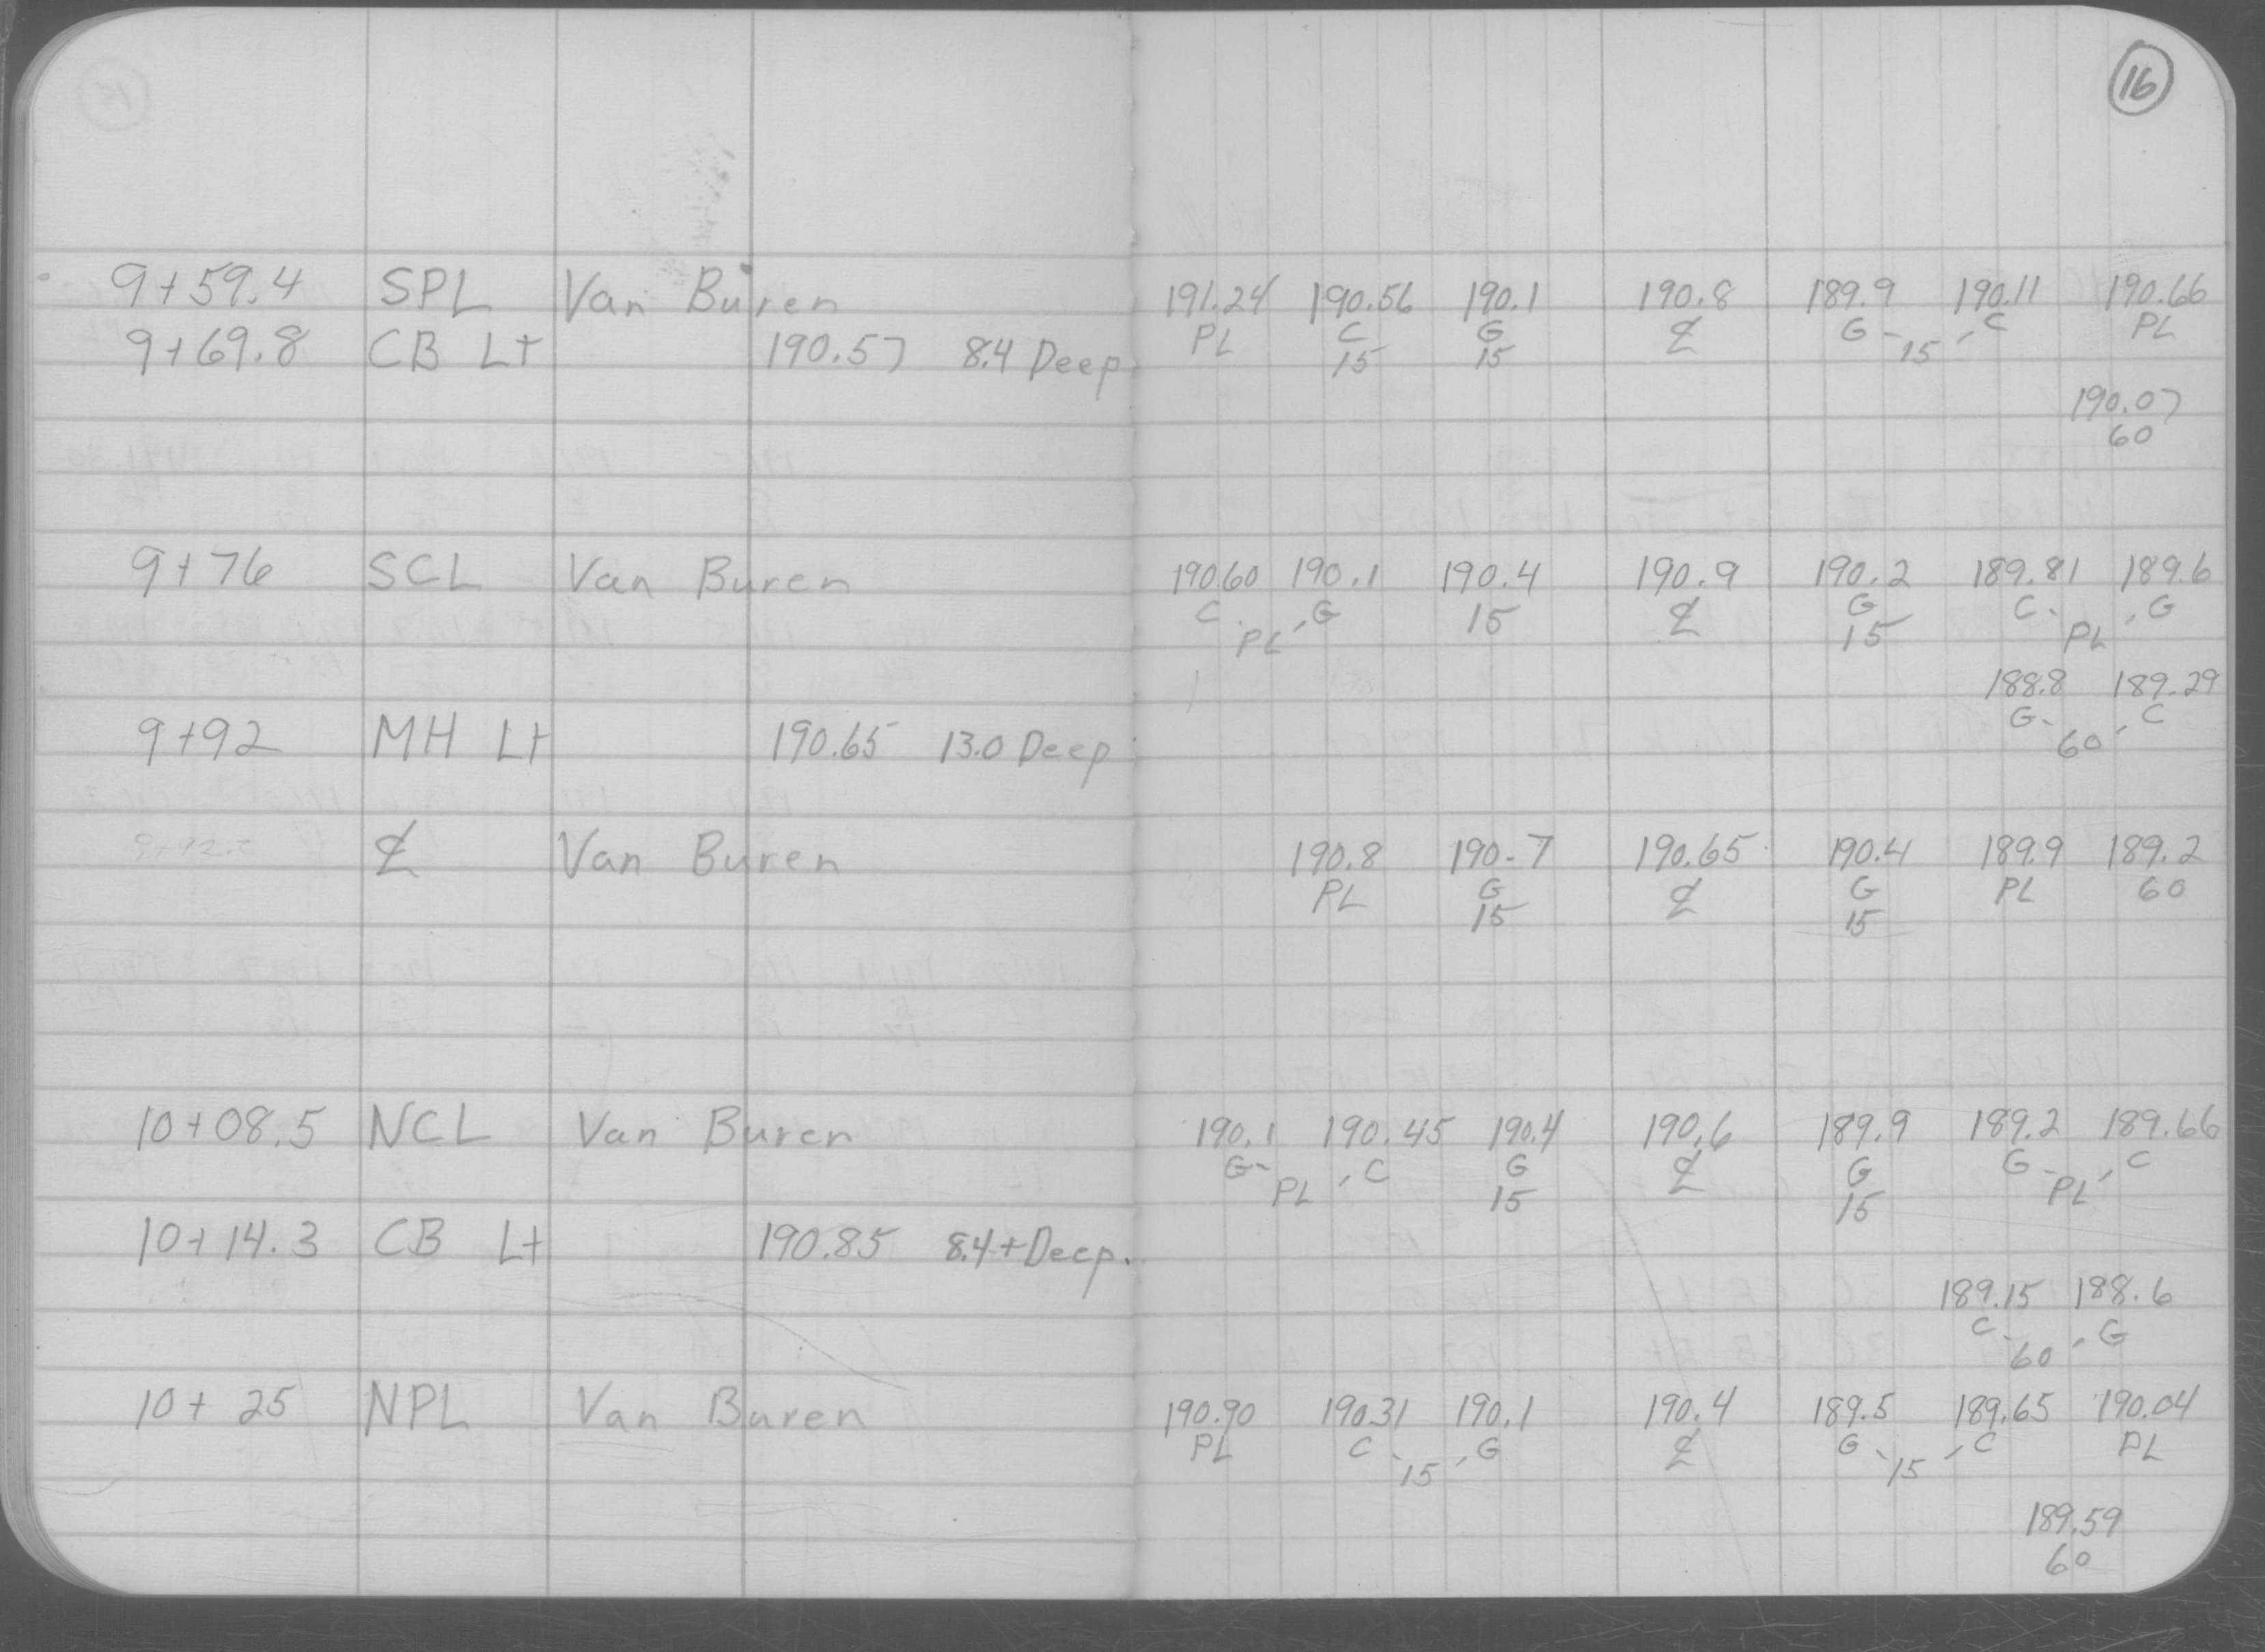 16
9+59.4 SPL Van Buren 191.24 190.56 190.1 190.8 189.9 190.11 190.66
PL C G ℄ G C PL
15 15 15
9+69.8 CB Lt 190.57 8.4 Deep
190.07
60
9+76 SCL Van Buren 190.60 190.1 190.4 190.9 190.2 189.81 189.6
C G 15 ℄ G C G
PL 15 PL
188.8 189.29
G C
9+92 MH Lt 190.65 13.0 Deep 60
9+92.2 ℄ Van Buren 190.8 190.7 190.65 190.4 189.9 189.2
PL G ℄ G PL 60
15 15
10+08.5 NCL Van Buren 190.1 190.45 190.4 190.6 189.9 189.2 189.66
G C G ℄ G G C
PL 15 15 PL
10+14.3 CB Lt 190.85 8.4+Deep.
189.15 188.6
C G
60
10+25 NPL Van Buren 190.90 190.31 190.1 190.4 189.5 189.65 190.04
PL C G ℄ G C PL
15 15
189.59
60